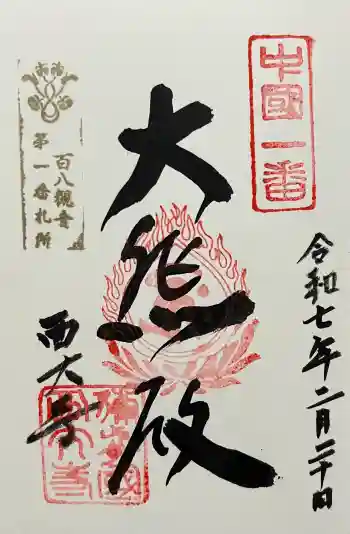 中國一番
令和七年二月二十日
大悲殿
百八觀音
第一番札所
西大寺